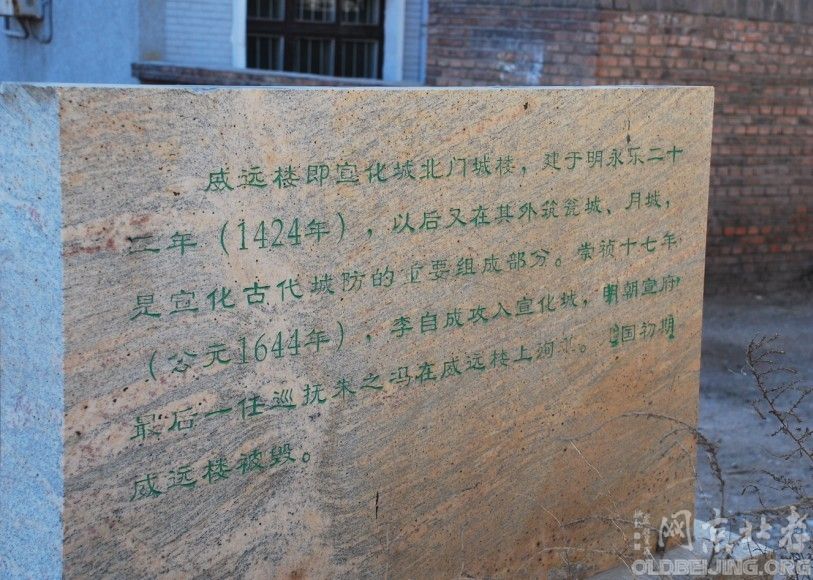 威远楼即宣化城北门城楼，建于明永乐二十
二年（1424年），以后又在其外筑瓮城、月城，
是宣化古代城防的重要组成部分。崇祯十七年
（公元1644年），李自成攻入宣化城，明朝宣府
最后一任巡抚朱之冯在威远楼上殉北。民国初期
威远楼被毁。
老北京网
OLDBEIJING.ORG